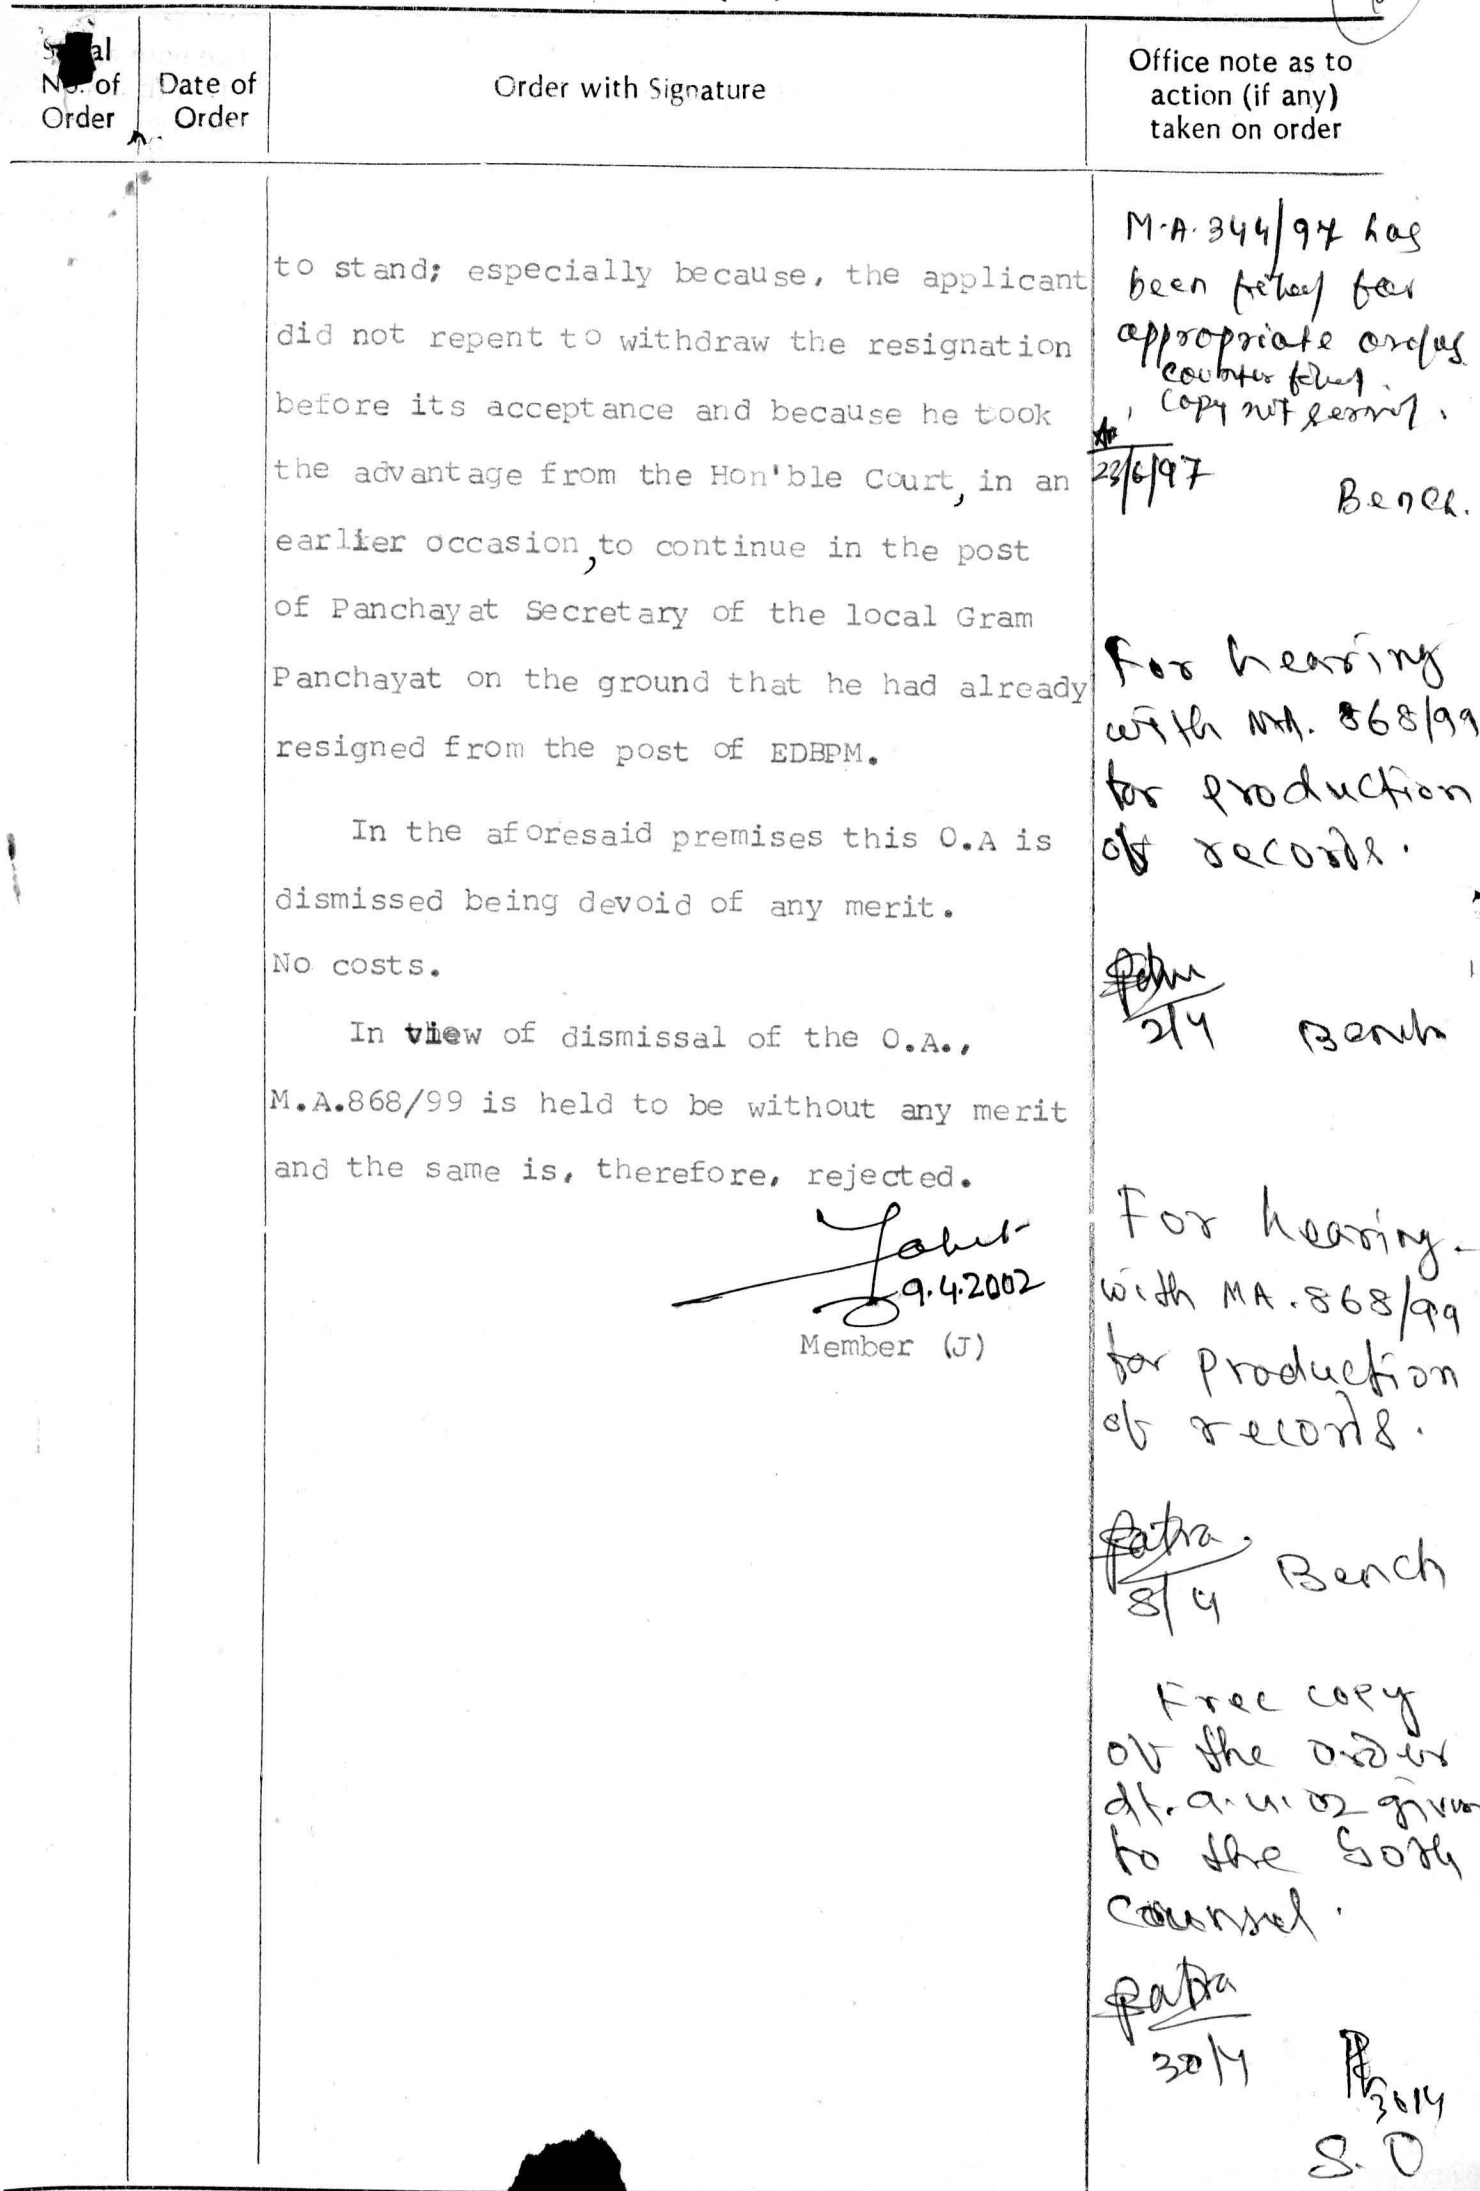 Serial
No. of
Order
Date of
Order
Order with Signature
Office note as to
action (if any)
taken on order
to stand; especially because, the applicant
did not repent to withdraw the resignation
before its acceptance and because he took
the advantage from the Hon'ble Court, in an
earlier occasion, to continue in the post
of Panchayat Secretary of the local Gram
Panchayat on the ground that he had already
resigned from the post of EDBPM.
In the aforesaid premises this O.A is
dismissed being devoid of any merit.
No costs.
In view of dismissal of the O.A.,
M.A.868/99 is held to be without any merit
and the same is, therefore, rejected.
9.4.2002
Member (J)
M.A. 344/97 has
been filed for
appropriate orders
counter filed.
Copy not served.
23/6/97
Bench.
For hearing
with MA. 868/99
for production
of records.
2/4
Bench
For hearing
with MA. 868/99
for production
of records.
Patra
8/4
Bench
Free copy
of the order
dt. 9.4.02 given
to the both
counsel.
Patra
30/4
30/4
S.O